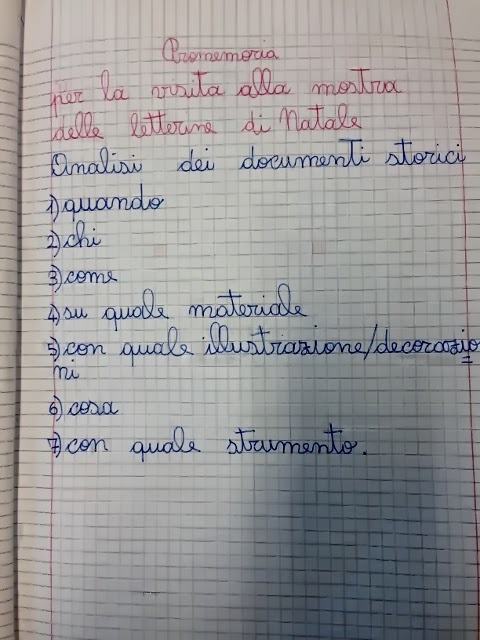 Promemoria
per la visita alla mostra
delle letterine di Natale
Analisi dei documenti storici
1) quando
2) chi
3) come
4) su quale materiale
5) con quale illustrazione/decorazio=
ni
6) cosa
7) con quale strumento.